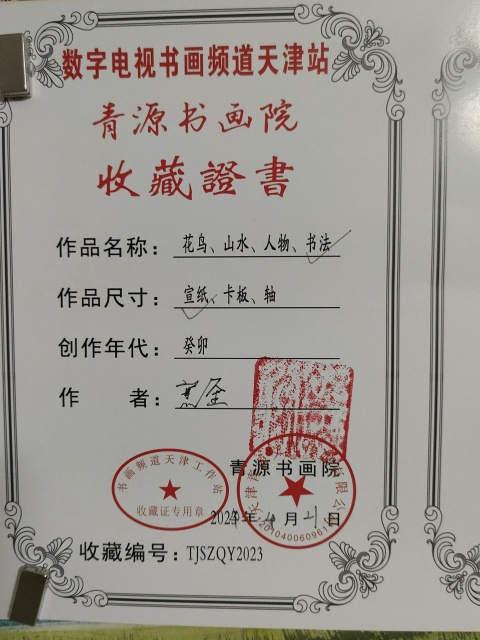 数字电视书画频道天津站
青源书画院
收藏證書
作品名称：花鸟、山水、人物、书法
作品尺寸：宣纸、卡板、轴
创作年代：癸卯
作 者：
青源书画院
书画频道天津工作站
收藏证专用章
年 月 日
收藏编号：TJSZQY2023